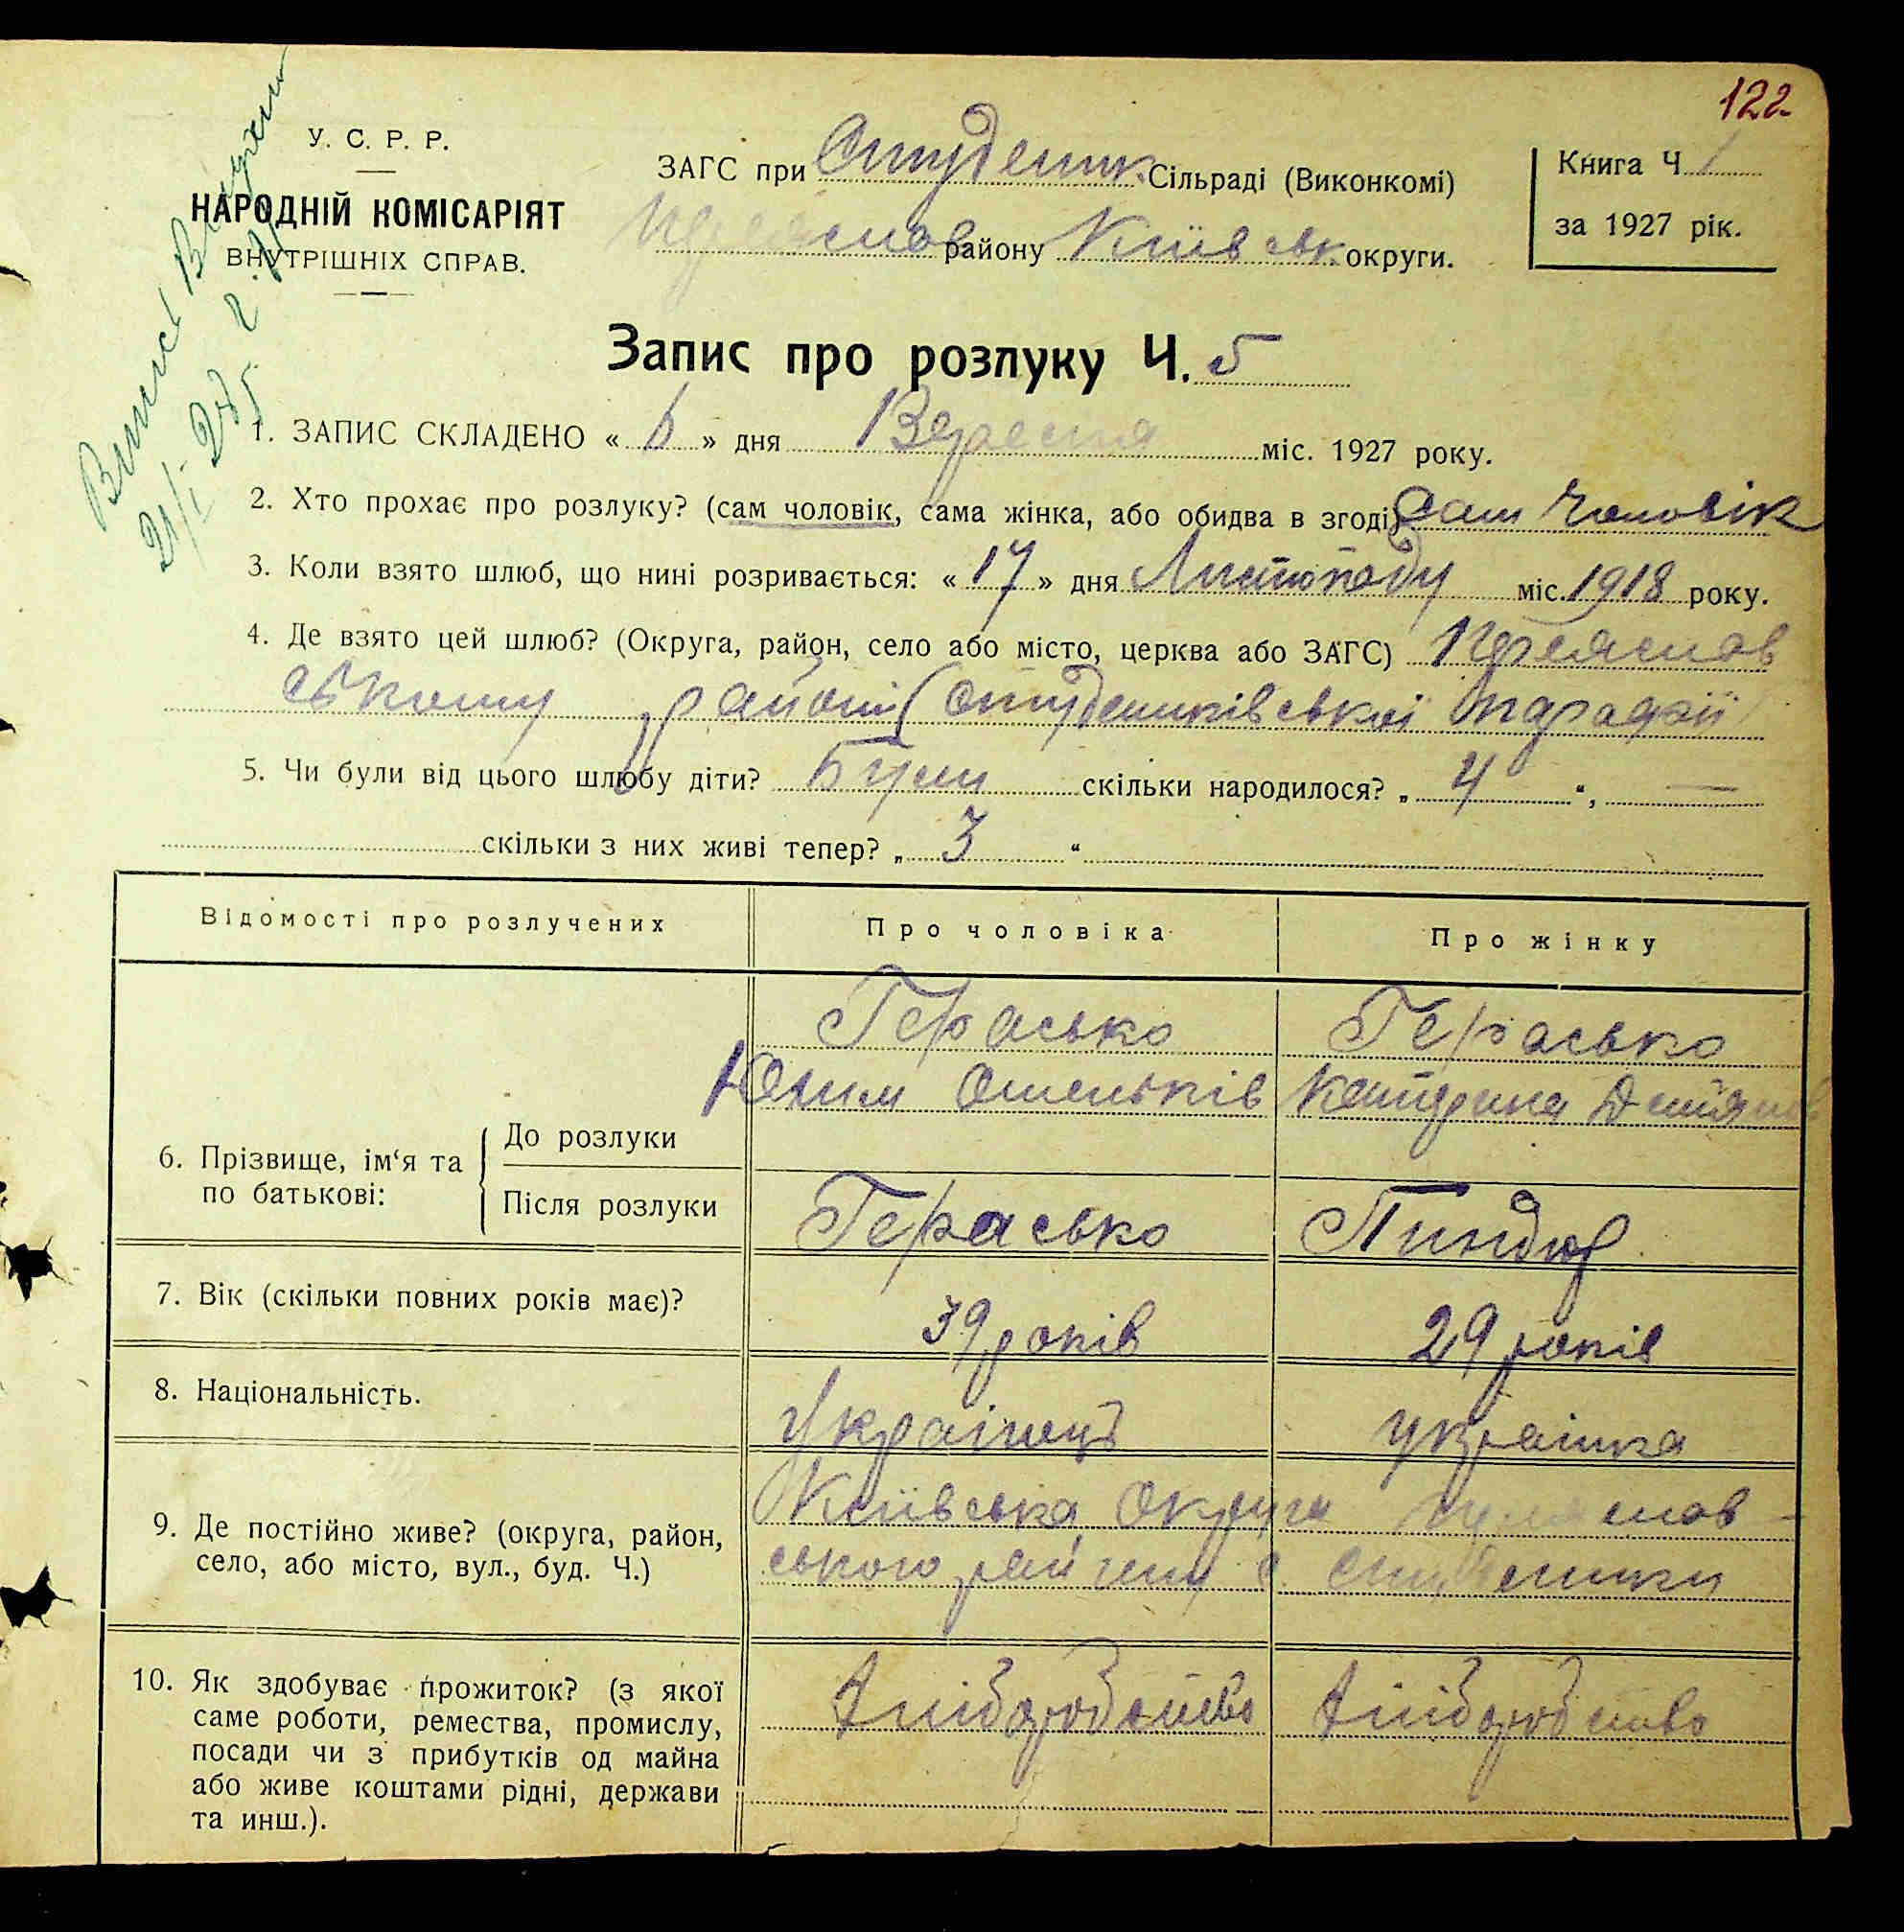 122
У. С. Р. Р.
НАРОДНІЙ КОМІСАРІЯТ
ВНУТРІШНІХ СПРАВ.
ЗАГС при Студеник. Сільраді (Виконкомі)
Переяслав району Київськ. округи.
Книга Ч 1
за 1927 рік.
Запис про розлуку Ч. 5
1. ЗАПИС СКЛАДЕНО « 6 » дня Вересня міс. 1927 року.
2. Хто прохає про розлуку? (сам чоловік, сама жінка, або обидва в згоді) Сам Чоловік
3. Коли взято шлюб, що нині розривається: « 17 » дня Листопаду міс. 1918 року.
4. Де взято цей шлюб? (Округа, район, село або місто, церква або ЗАГС) Переяслав
ському районі (Студениківської парафії)
5. Чи були від цього шлюбу діти? Були скільки народилося? „ 4 “, —
скільки з них живі тепер? „ 3 “
Відомості про розлучених Про чоловіка Про жінку
6. Прізвище, ім‘я та по батькові:
До розлуки
Герасько
Юхим Омельків
Герасько
Катерина Демянов
Після розлуки
Герасько
Пиндюр
7. Вік (скільки повних років має)? 39 років 29 років
8. Національність. Українець українка
9. Де постійно живе? (округа, район,
село, або місто, вул., буд. Ч.)
Київська Округи Переяслав-
ського району с. Студеники
10. Як здобуває прожиток? (з якої
саме роботи, ремества, промислу,
посади чи з прибутків од майна
або живе коштами рідні, держави
та инш.).
Хліборобство Хліборобство